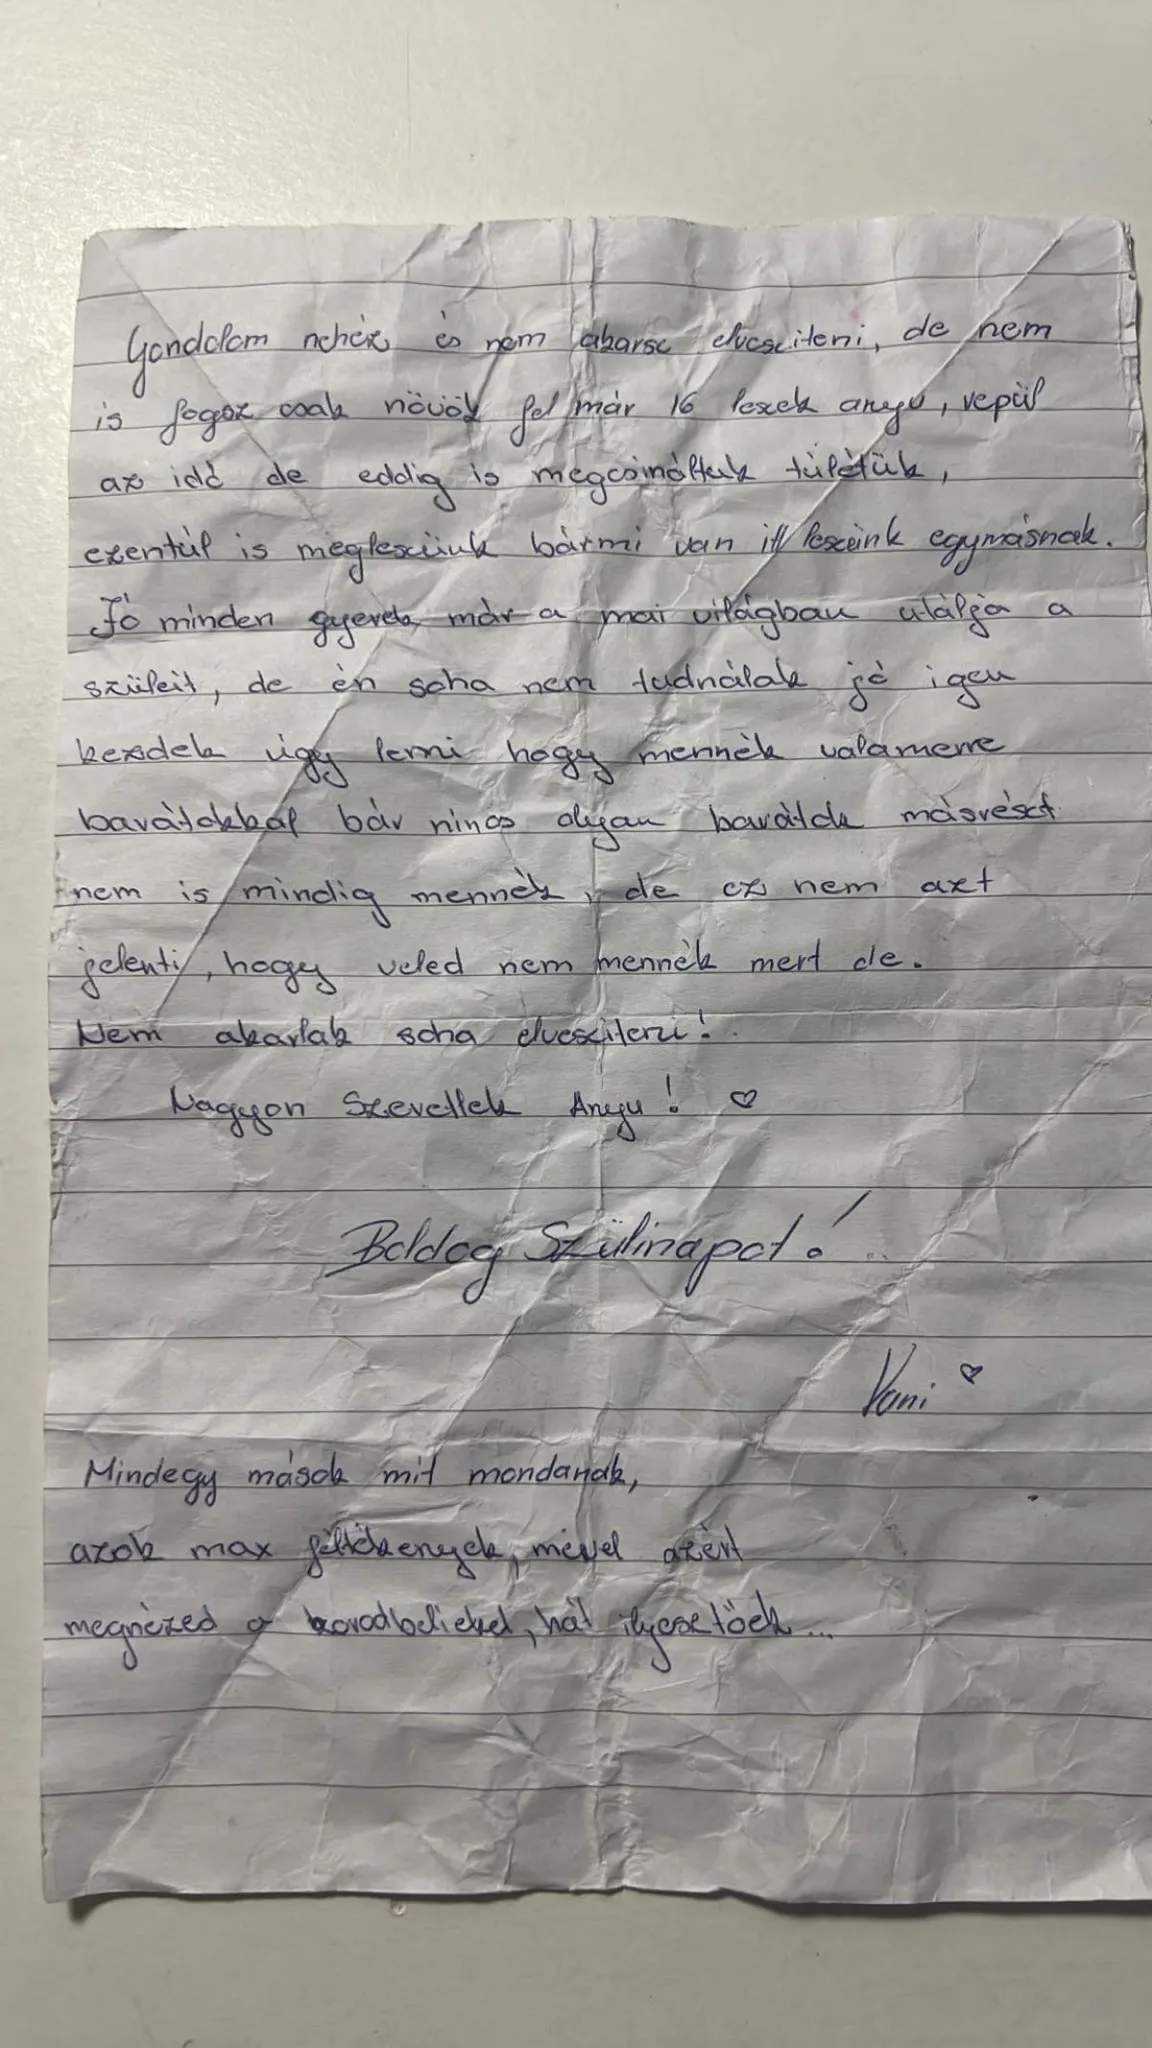 Gondolom nehéz és nem akarsz elveszíteni, de nem
is fogsz csak növök fel már 16 leszek anyu, vepül
az idő de eddig is megcsináltuk túlétük,
ezentúl is megleszünk bármi van itt leszünk egymásnak.
Jó minden gyerek már a mai világban utálja a
szüleit, de én soha nem tudnálak jó igen
kezdek úgy lenni hogy mennék valamerre
barátokkal bár nincs olyan barátok másrészt
nem is mindig mennék, de ez nem azt
jelenti, hogy veled nem mennék mert de.
Nem akarlak soha elveszíteni!
Nagyon Szeretlek Anyu! ♡
Boldog Szülinapot!
Vani ♡
Mindegy mások mit mondanak,
azok max féltékenyek, mivel azért
megnézed a korodbelieket, hát ilyesztőek...